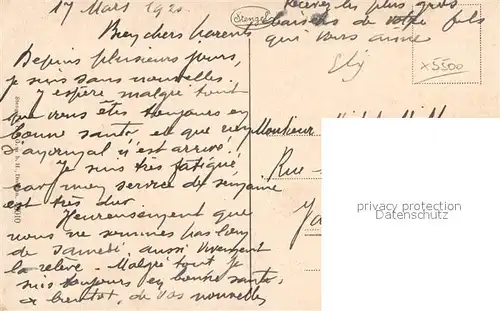 17 Mars 1920
Bien chers parents
Depuis plusieurs jours,
je suis sans nouvelles.
J'espère malgré tout
que vous êtes toujours en
bonne santé et que rien
d'anormal n'est arrivé!
Je suis très fatigué
car mon service de semaine
est très dur.
Heureusement que
nous ne sommes pas loin
de samedi, aussi vivement
la relève. Malgré tout je
suis toujours en bonne santé.
à bientôt, de vos nouvelles
Recevez les plus gros
baisers de votre fils
qui vous aime
Stengel
x5500
Monsieur
Rue
privacy protection
Datenschutz